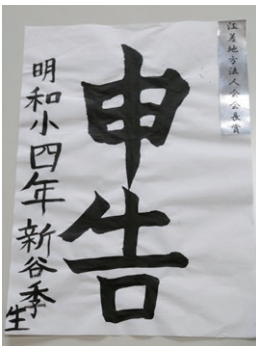 江差地方法人会会長賞
申告
明和小四年 新谷季生